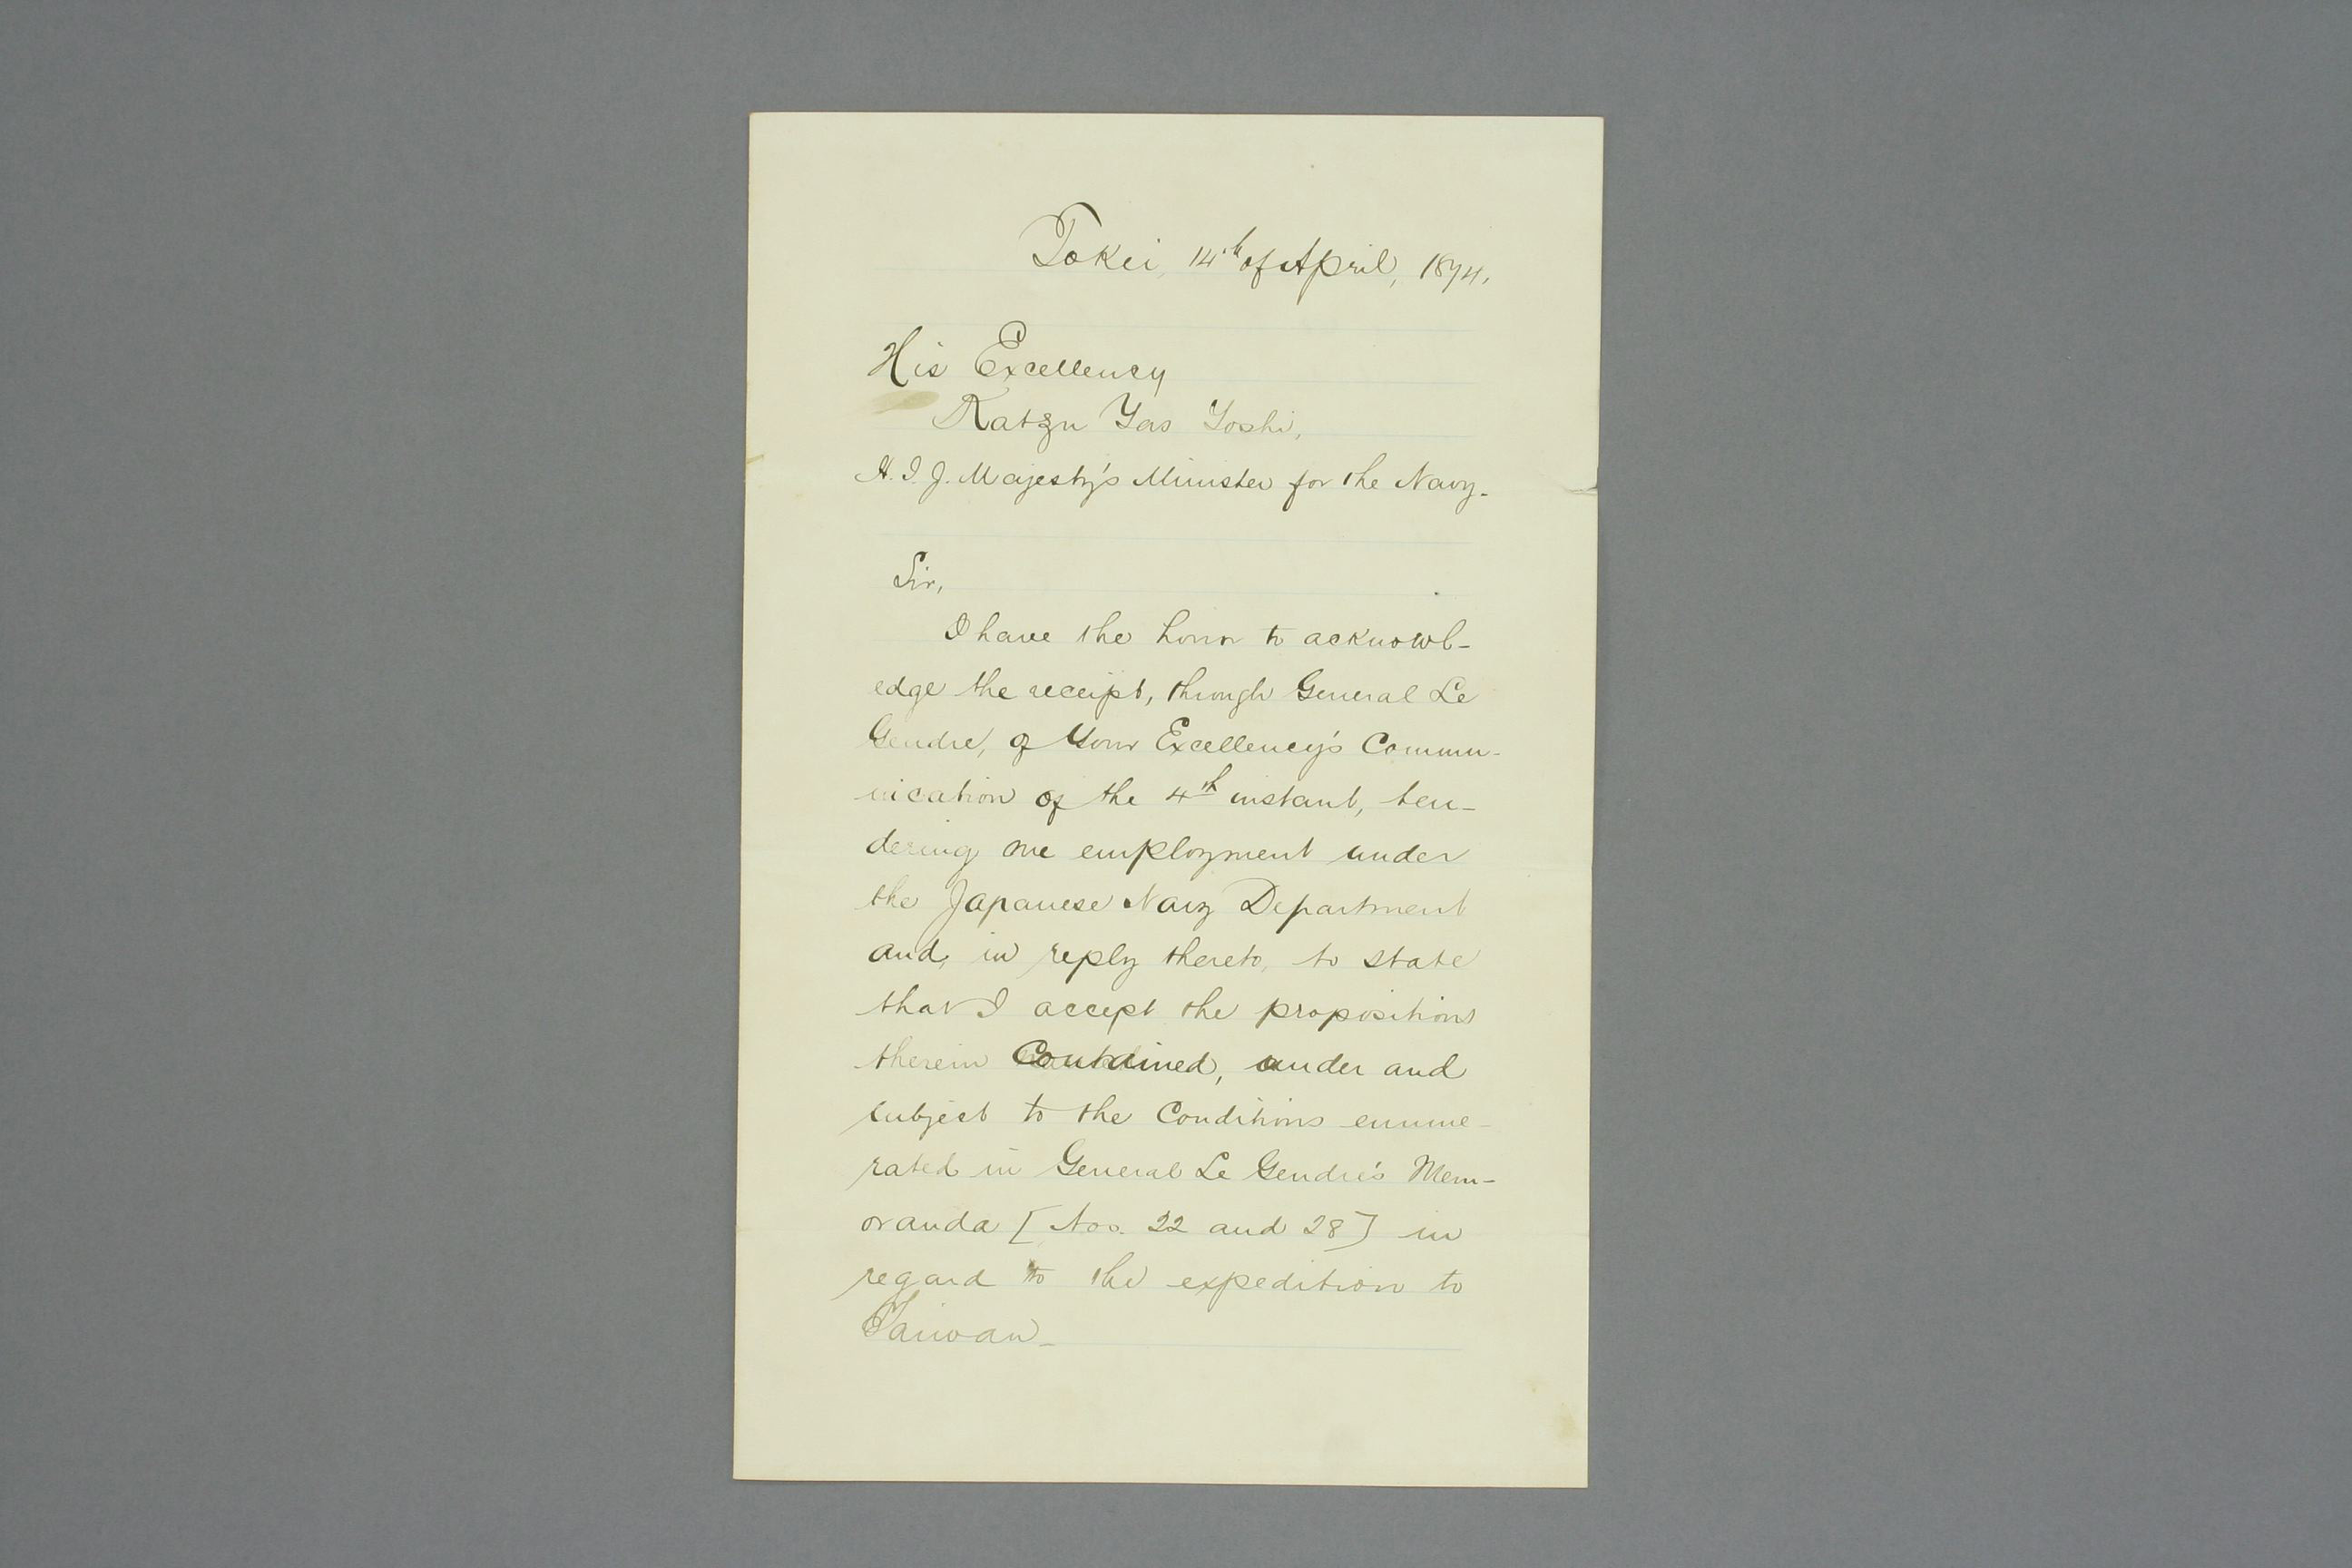 Tokei, 14th of April, 1874.
His Excellency
Katzu Yas Yoshi,
H. I. J. Majesty's Minister for the Navy.
Sir,
I have the honor to acknowl-
edge the receipt, through General Le
Gendre, of Your Excellency's Commu-
nication of the 4th instant, ten-
dering me employment under
the Japanese Navy Department
and, in reply thereto, to state
that I accept the propositions
therein Contained, under and
subject to the Conditions enume-
rated in General Le Gendre's Mem-
oranda [Nos. 22 and 28] in
regard to the expedition to
Taiwan_